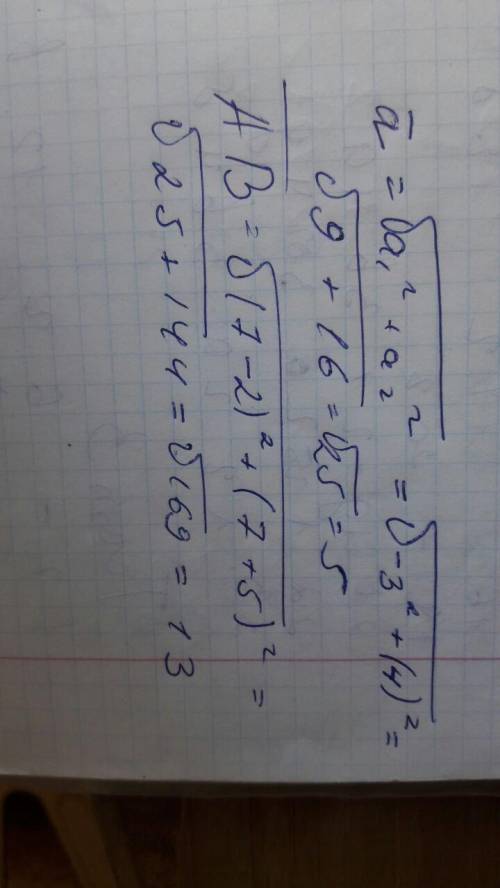 ā = √a₁² + a₂² = √-3² + (4)² =
√9 + 16 = √25 = 5
AB = √(7-2)² + (7+5)² =
√25 + 144 = √169 = 13